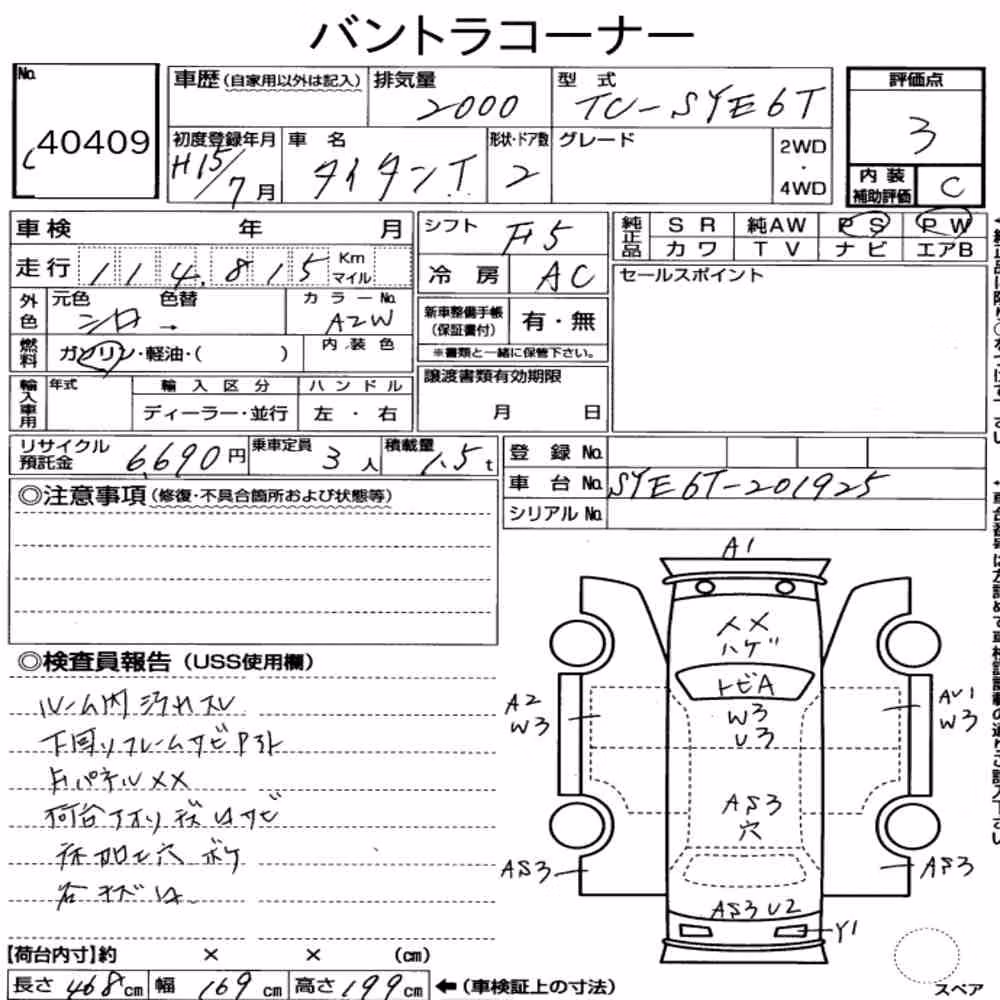 バントラコーナー
No. 40409
車歴(自家用以外は記入)
排気量 2000
型 式 TC-SYE6T
評価点 3
初度登録年月 H15/7月
車 名 タイタンT.
形状・ドア数 2
グレード
2WD・4WD
内装補助評価 C
車検 年 月
シフト F5
純正品 SR 純AW PS PW
カワ TV ナビ エアB
走行 114,815 Km マイル
冷 房 AC
セールスポイント
外色 元色 シロ → 色替
カラーNo. A2W
新車整備手帳(保証書付) 有・無
※書類と一緒に保管下さい。
燃料 ガソリン・軽油・( )
内装色
譲渡書類有効期限
月 日
輸入車用 年式 輸入区分 ハンドル
ディーラー・並行 左・右
リサイクル預託金 6,690円
乗車定員 3人
積載量 1.5t
登 録 No.
車 台 No. SYE6T-201925
シリアル No.
◎注意事項(修復・不具合箇所および状態等)
◎検査員報告(USS使用欄)
ルーム内汚れスレ
下回リフレームサビ
パネル××
荷台アオリ サビ
床加工穴 ボケ
A1
××
ハゲ
トビA
A2
W3
W3
U3
AU1
W3
AS3
穴
AS3
AS3
AS3 U2
Y1
【荷台内寸】約 × × (cm)
長さ 468cm 幅 169cm 高さ 199cm ←(車検証上の寸法)
スペア